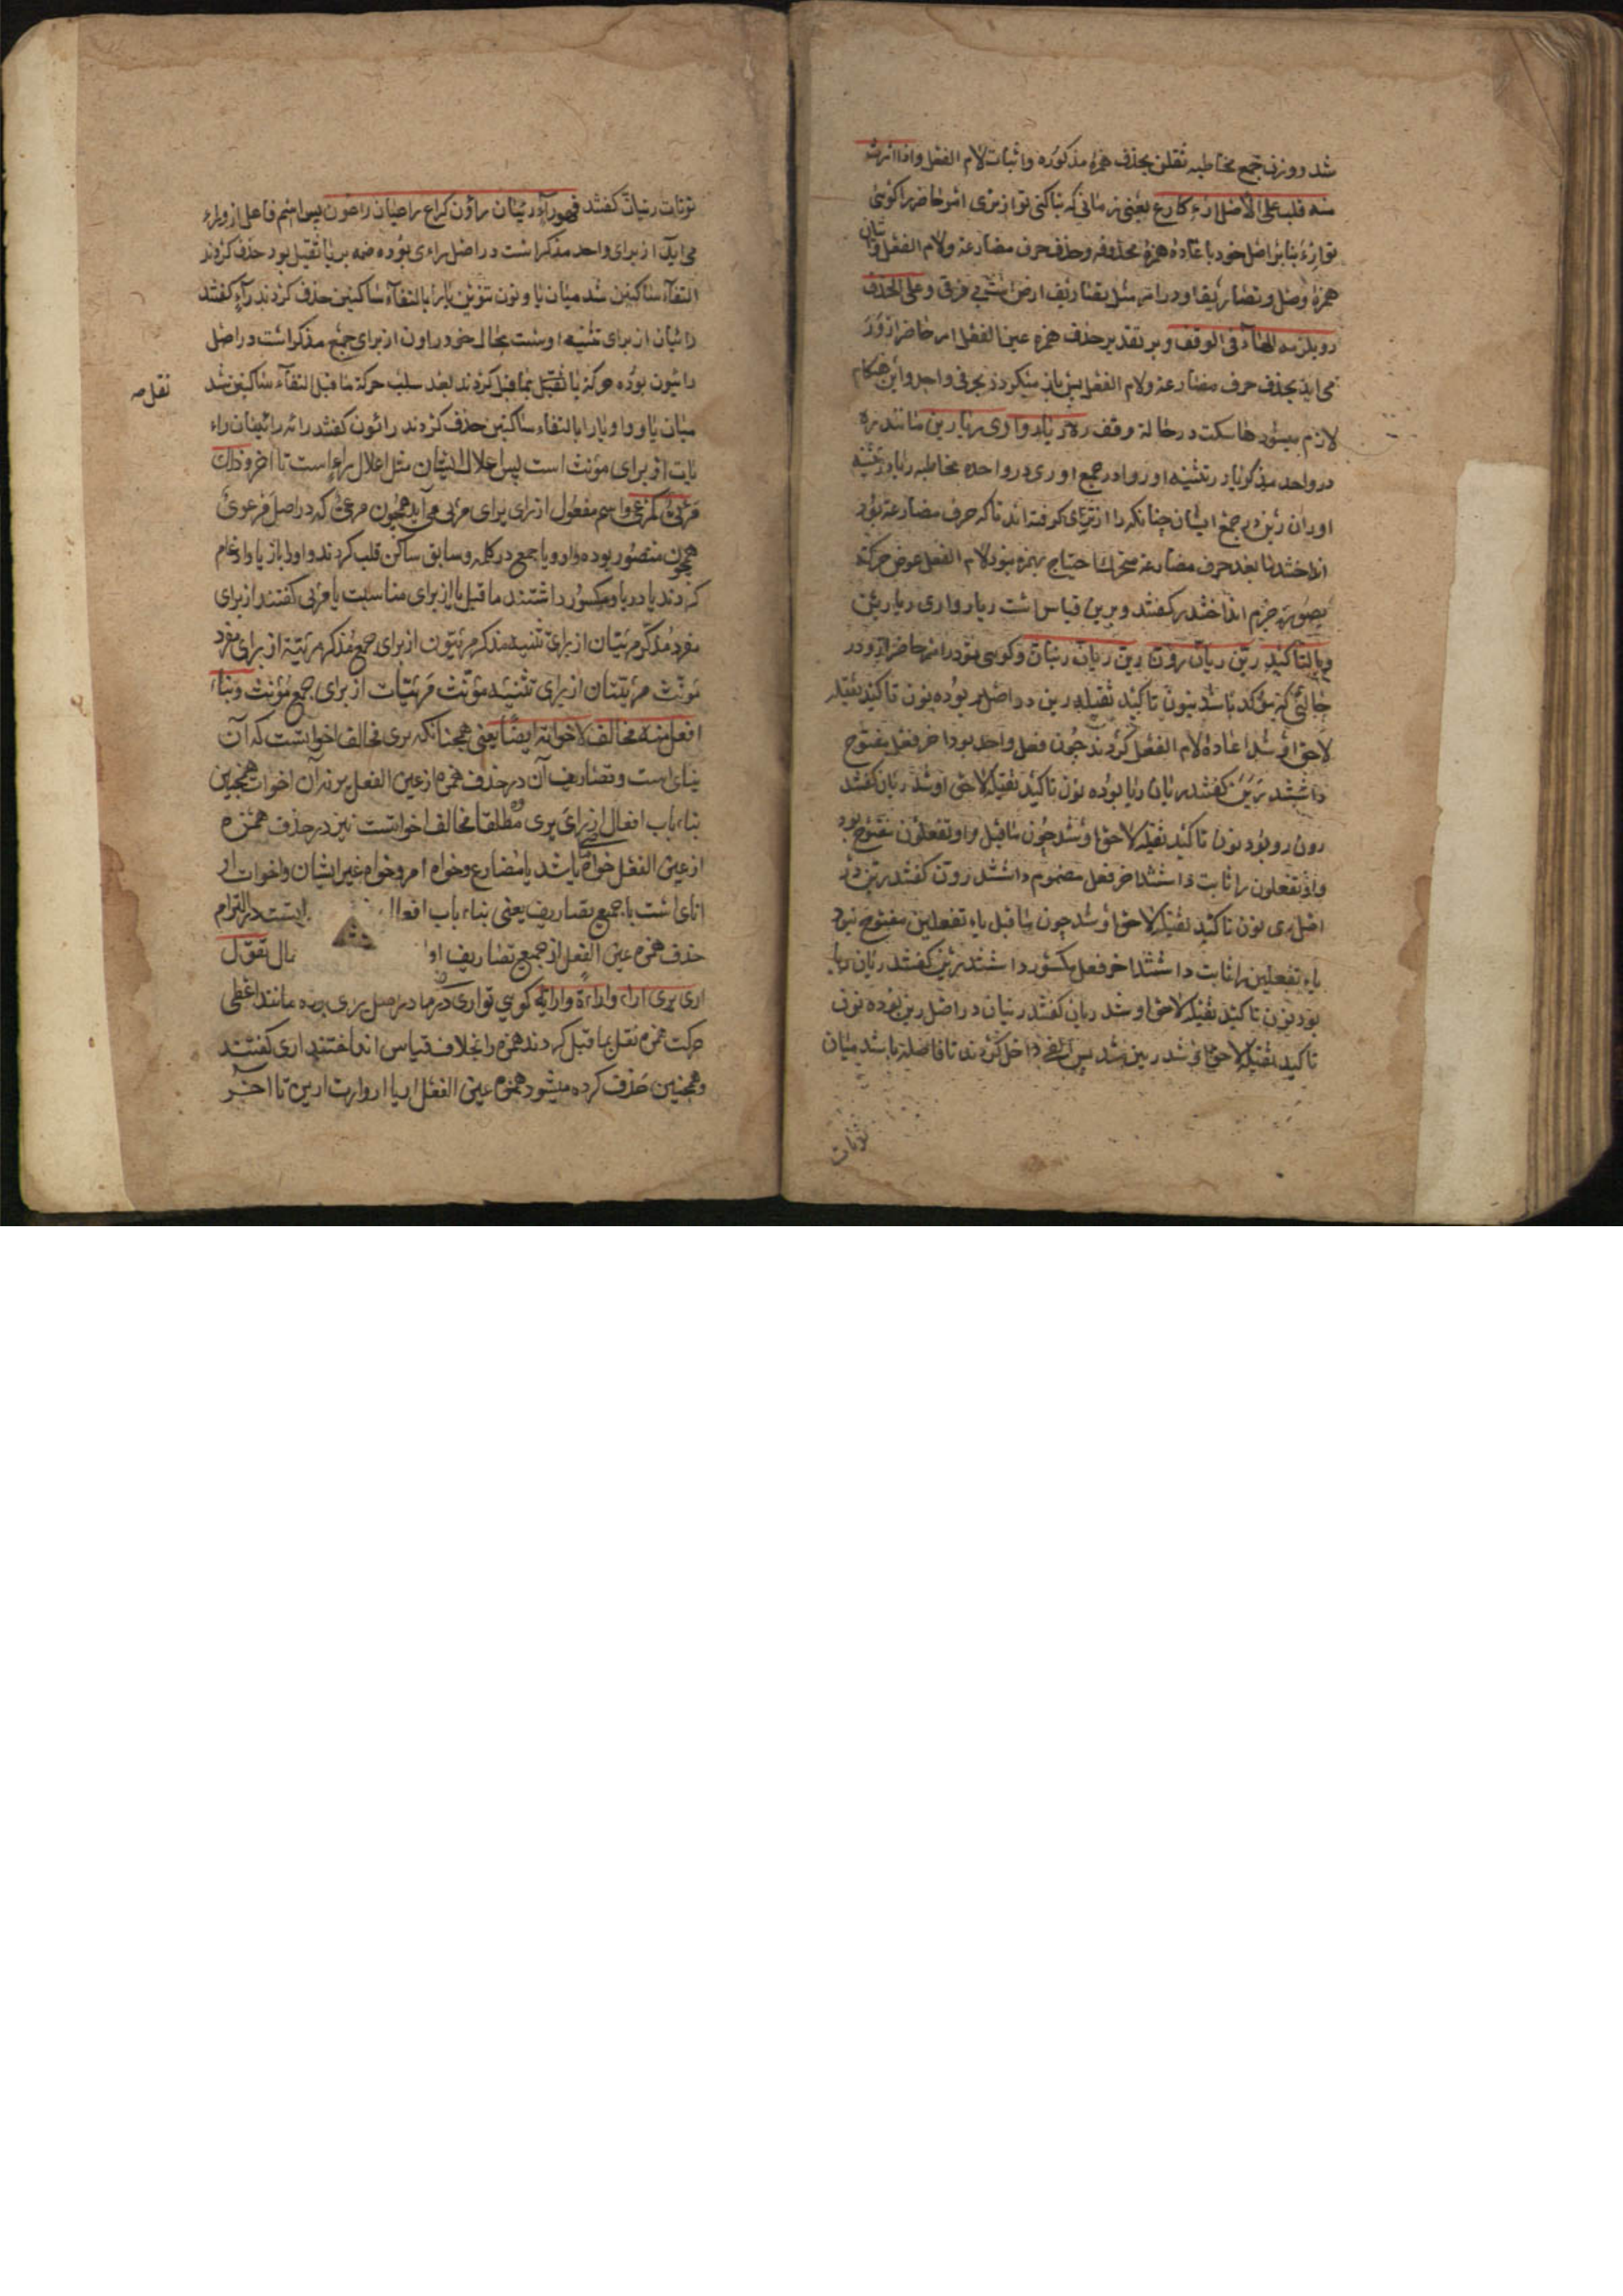 شد دو وزن جمع مخاطبه تفلن بحذف همزه مذکوره واثبات لام الفعل واذا امرت
منه قلت علی الاصل ارء کارع یعنی زمانی که بنا کنی تو از تری امر حاضر را کوئی
تو ارء بنا بر اصل خود باعاده همزه محذوفه وحذف حرف مضارعة ولام الفعل واتیان
همزه وصل وتصاریف او در امر مثل تصاریف ارض است بی فرق وعلی الحذف
ر ویلزمه الهاء فی الوقف وبر تقدیر حذف همزه عین الفعل امر حاضر از تری ر
می اید بحذف حرف مضارعة ولام الفعل پس باز میکردد بحرفی واحد واین هنکام
لازم میشود ها سکت در حالة وقف ره ریا روا ری ریا رین مانند ره
در واحد مذکر وریا در تثنیه او وروا در جمع او وری در واحده مخاطبه ریا در تثنیه
او ورین در جمع ایشان چنانکه را از تری کرفته اند تا که حرف مضارعة بود
انداختند ما بعد حرف مضارعة متحرك احتیاج بهمزه نبود لام الفعل عوض حرکة
بصورت جزم انداختند ر کفتند وبرین قیاس است ریا روا ری ریا رین
وبالتاکید رین ریان رون رین ریان رینان وکویی تو در امر حاضر از تری در
حالتی که مؤکد باشد بنون تاکید ثقیله رین در اصل ر بوده نون تاکید ثقیله
لاحق او شد اعاده لام الفعل کردند چون فعل واحد بود اخر فعل مفتوح
داشتند رین کفتند ریان ریا بوده نون تاکید ثقیله لاحق او شد ریان کفتند
رون روا بود نون تاکید ثقیله لاحق او شد چون ما قبل واو تفعلون مفتوح بود
واو تفعلون را ثابت داشتند اخر فعل مضموم داشتند رون کفتند رین در
اصل ری نون تاکید ثقیله لاحق او شد چون ما قبل یاء تفعلین مفتوح بود
یاء تفعلین را ثابت داشتند اخر فعل مکسور داشتند رین کفتند ریان ریا
بود نون تاکید ثقیله لاحق او شد ریان کفتند رینان در اصل رین بوده نون
تاکید ثقیله لاحق او شد رینن شد پس الفی داخل کردند تا فاصله باشد میان
نونات
نونات رینان کفتند فهو راء رئیان راؤن کراع راعیان راعون پس اسم فاعل از وراء
می اید از برای واحد مذکر است در اصل راءی بوده ضمه بر یا ثقیل بود حذف کردند
التقاء ساکنین شد میان یا ونون تنوین یا را بالتقاء ساکنین حذف کردند راء کفتند
رائیان از برای تثنیه اوست بحال خود راون از برای جمع مذکر است در اصل
رائیون بوده حرکة یا ثقیل بما قبل کردند بعد سلب حرکة ما قبل التقاء ساکنین شد
نقل صه
میان یا وواو یا را بالتقاء ساکنین حذف کردند راؤن کفتند رائیة رائیتان راء
یات از برای مؤنث است پس اعلال ایشان مثل اعلال راء است تا اخر وذاك
مرئی کمرعی واسم مفعول از برای مرئی می آید همچون مرعی که در اصل مرعوی
همچون منصور بوده واو ویا جمع در کلمه وسابق ساکن قلب کردند واو را بیا وادغام
کردند یا در یا ومکسور داشتند ما قبل یا از برای مناسبت یا مرئی کفتند از برای
مفرد مذکر مرئیان از برای تثنیه مذکر مرئیون از برای جمع مذکر مرئیة از برای مفرد
مونث مرئیتان از برای تثنیه مؤنث مرئیات از برای جمع مؤنث وبناء
افعل منه مخالف لاخواته ایضا یعنی همچنانکه یری مخالف اخواتست که آن
ینای است وتصاریف آن در حذف همزه از عین الفعل یری نه آن اخوات همچنین
بناء باب افعال از رای یری مطلقا مخالف اخواتست نیز در حذف همزه
از عین الفعل خواه ماضی باشد یا مضارع وخواه امر وخواه غیر ایشان واخوات ار
انای است با جمیع تصاریف یعنی بناء باب افعال ایست در التزام
حذف همزه عین الفعل از جمیع تصاریف او تقول
اری یری اراء واراءة وارایة کویی تو اری در ماضی در اصل ارءی بوده مانند اعطی
حرکت همزه نقل بما قبل کردند همزه را بخلاف قیاس انداختند اری کفتند
وهمچنین حذف کرده میشود همزه عین الفعل اریا اروا ارت ارین تا اخر